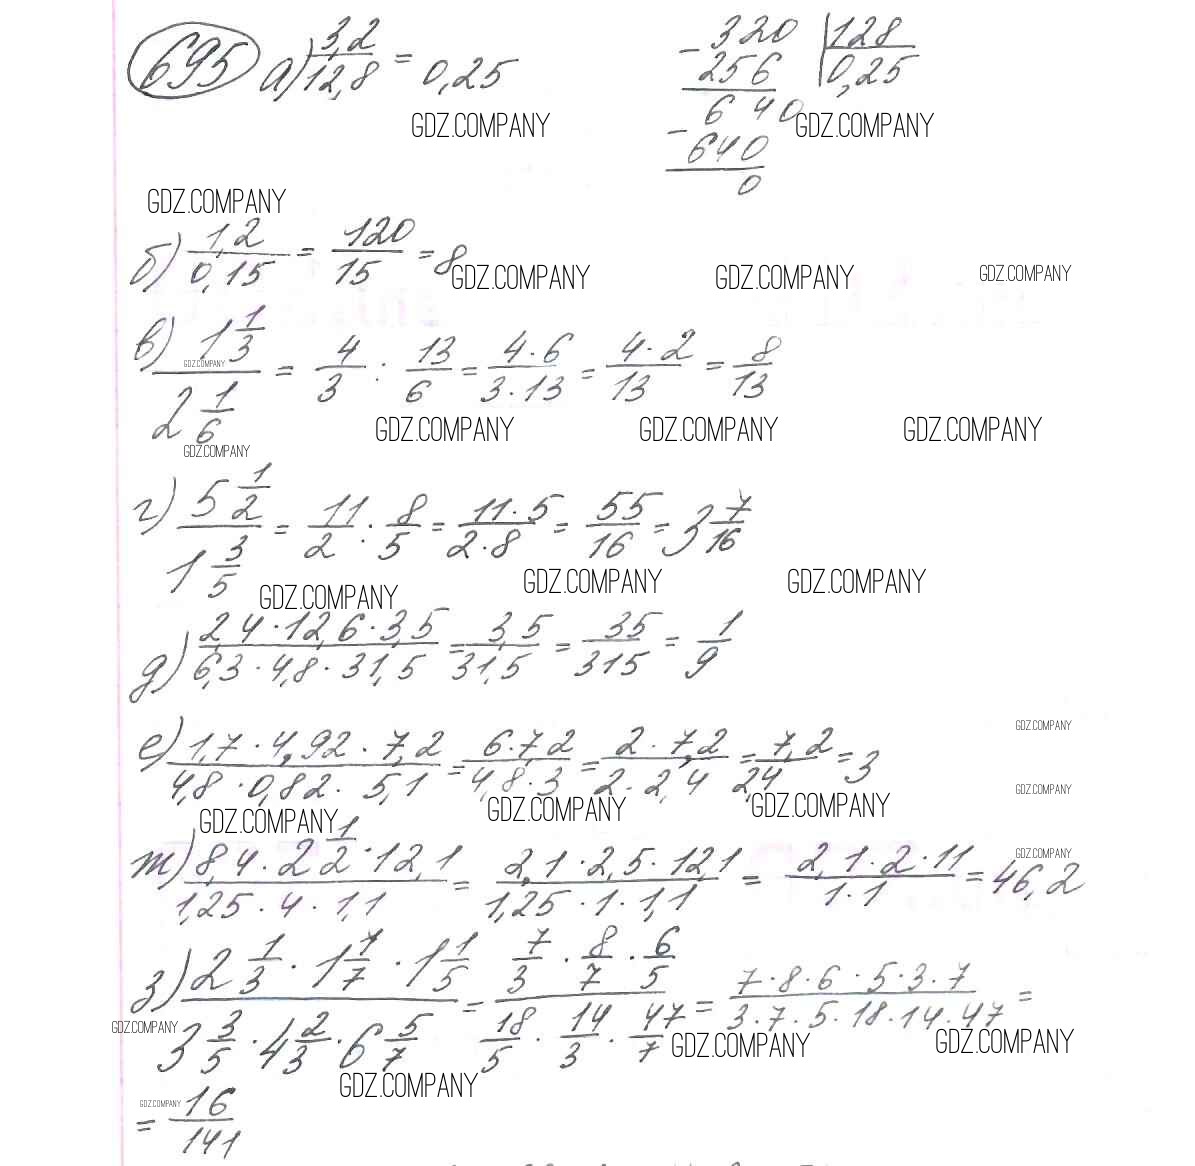 695 а) 3,2/12,8 = 0,25
320 | 128
- 256 | 0,25
640
- 640
0
GDZ.COMPANY GDZ.COMPANY
GDZ.COMPANY
б) 1,2/0,15 = 120/15 = 8
GDZ.COMPANY GDZ.COMPANY GDZ.COMPANY
в) 1 1/3 / 2 1/6 = 4/3 : 13/6 = 4·6/3·13 = 4·2/13 = 8/13
GDZ.COMPANY
GDZ.COMPANY GDZ.COMPANY GDZ.COMPANY
GDZ.COMPANY
г) 5 1/2 / 1 3/5 = 11/2 : 8/5 = 11·5/2·8 = 55/16 = 3 7/16
GDZ.COMPANY GDZ.COMPANY GDZ.COMPANY
д) 2,4·12,6·3,5/6,3·4,8·31,5 = 3,5/31,5 = 35/315 = 1/9
GDZ.COMPANY
е) 1,7·4,92·7,2/4,8·0,82·5,1 = 6·7,2/4,8·3 = 2·7,2/2·2,4 = 7,2/2,4 = 3
GDZ.COMPANY
GDZ.COMPANY GDZ.COMPANY GDZ.COMPANY
ж) 8,4·2 1/2·12,1/1,25·4·1,1 = 2,1·2,5·12,1/1,25·1·1,1 = 2,1·2·11/1·1 = 46,2
GDZ.COMPANY
з) 2 1/3·1 1/7·1 1/5 / 3 3/5·4 2/3·6 5/7 = 7/3·8/7·6/5 / 18/5·14/3·47/7 = 7·8·6·5·3·7/3·7·5·18·14·47 =
GDZ.COMPANY GDZ.COMPANY GDZ.COMPANY
GDZ.COMPANY
= 16/141
GDZ.COMPANY